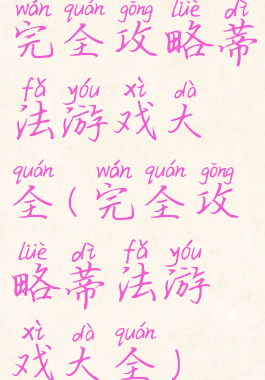 wán quán gōng lüè dì
完全攻略蒂
fǎ yóu xì dà
法游戏大
quán wán quán gōng
全(完全攻
lüè dì fǎ yóu
略蒂法游
xì dà quán
戏大全)